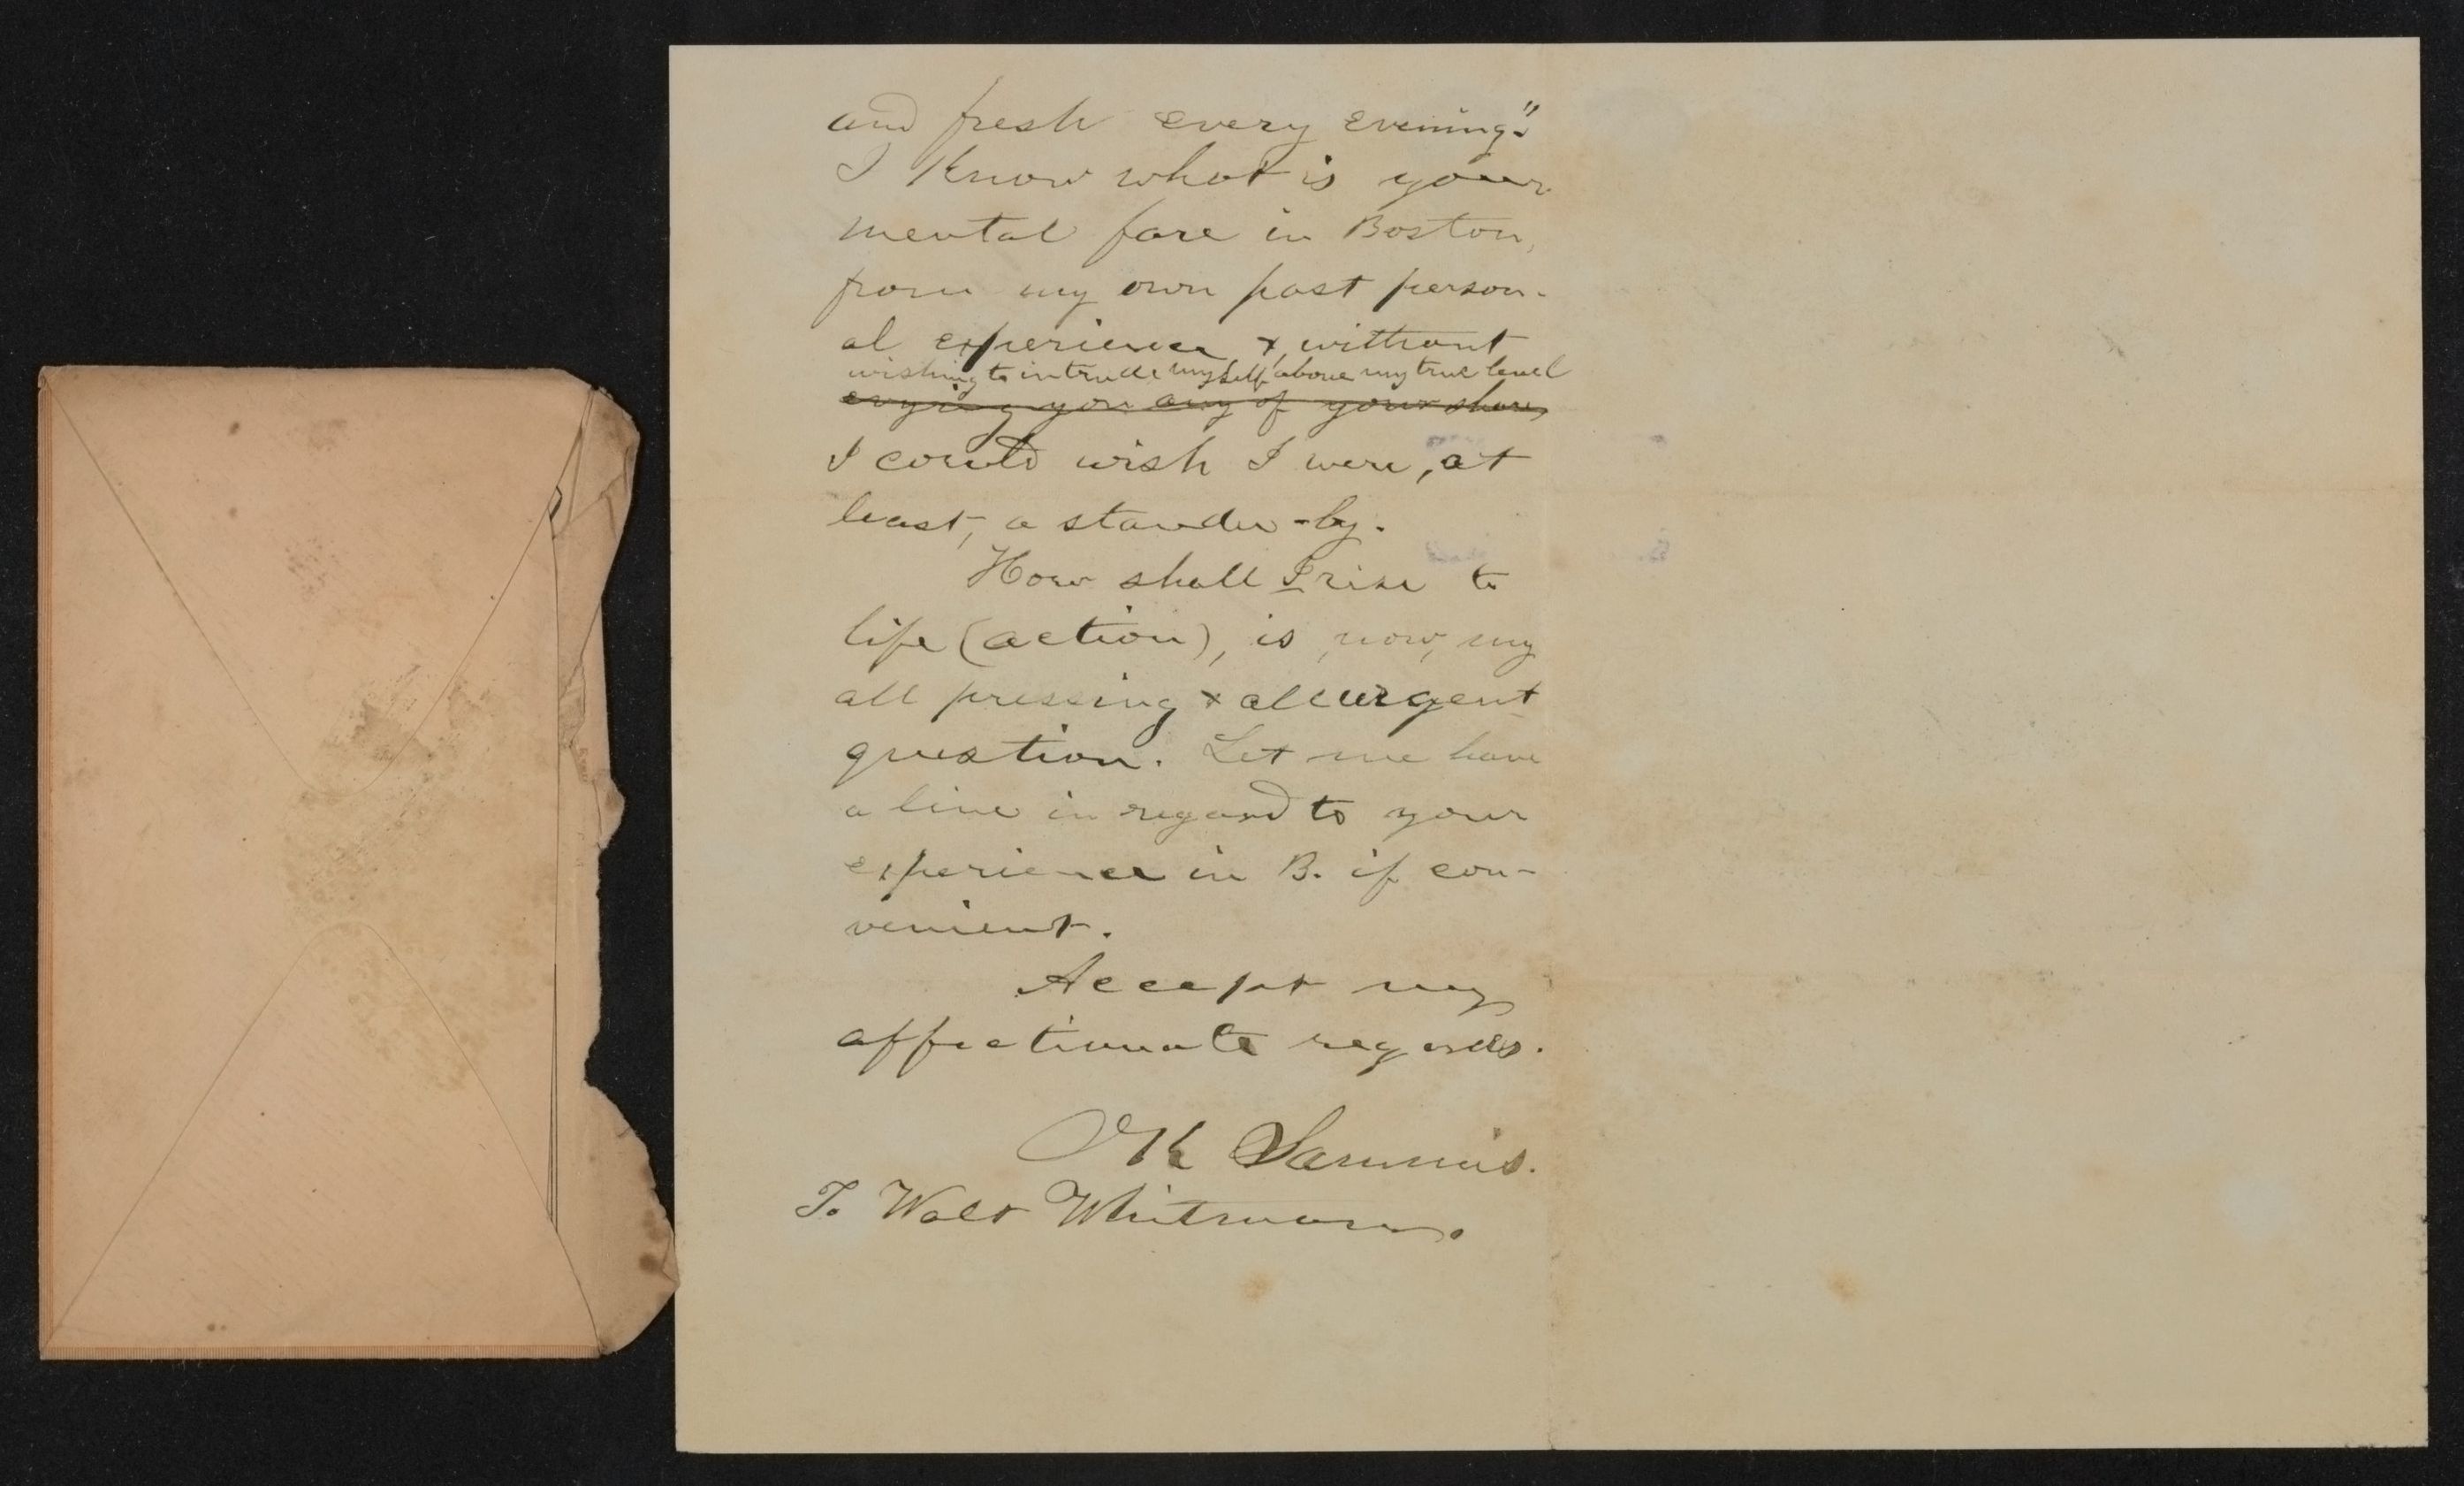 and fresh every evening."
I know what is your
mental fare in Boston,
from my own past person-
al experience & without
wishing to intrude myself above my true level
envying you any of your share,
I could wish I were, at
least, a stander-by.
How shall I rise to
life (action), is, now, my
all pressing & all urgent
question. Let me have
a line in regard to your
experience in B. if con-
venient.
Accept my
affectionate regards.
OK Sammis.
To Walt Whitman.